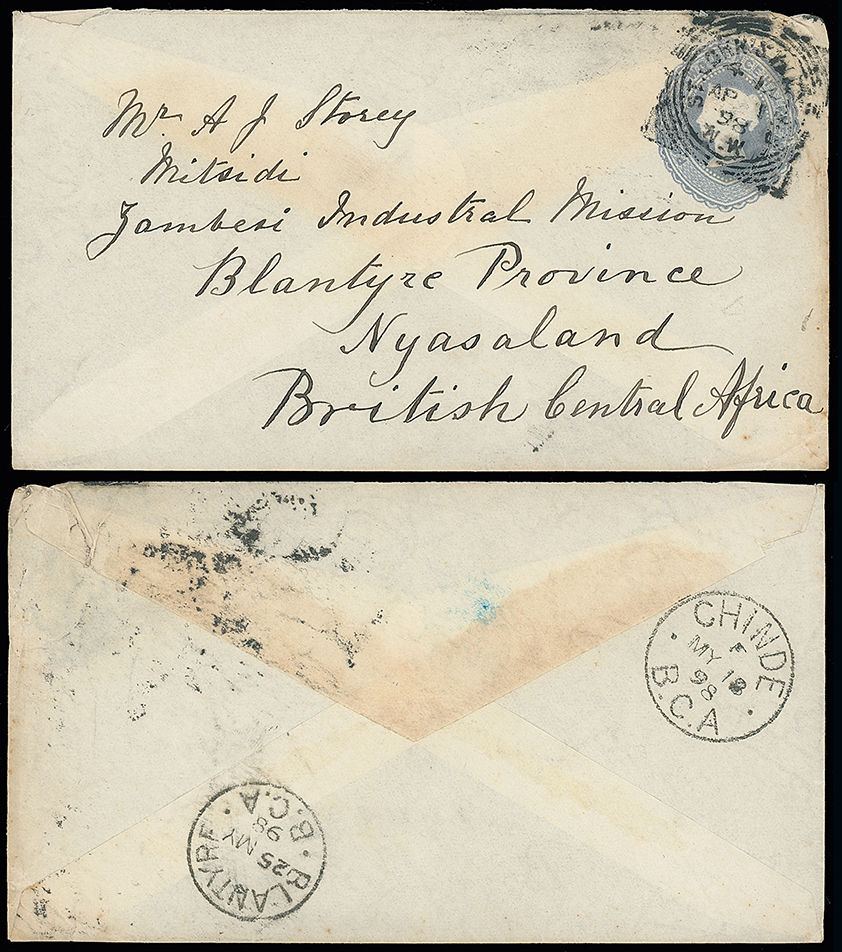 Mr. A J Storey
Mitsidi
Zambesi Industral Mission
Blantyre Province
Nyasaland
British Central Africa
ST. JOHN'S
AP
98
N.W.
CHINDE
F
MY 18
98
B.C.A
BLANTYRE
25 MY
98
B.C.A